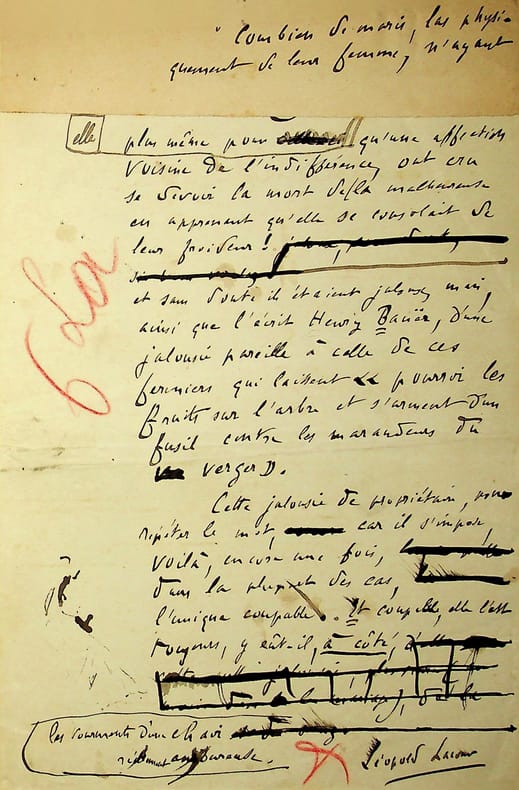 " Combien de maris, las physi-
quement de leur femme, n'ayant
plus même pour elle qu'une affection
voisine de l'indifférence, ont cru
se devoir la mort de la malheureuse
en apprenant qu'elle se consolait de
leur froideur !
et sans doute il étaient jaloux, mais,
ainsi que l'écrit Henry Bauër, d'une
jalousie pareille à celle de ces
fermiers qui laissent pourrir les
fruits sur l'arbre et s'arment d'un
fusil contre les maraudeurs du
verger ».
Cette jalousie de propriétaire, pour
répéter le mot, car il s'impose,
voilà, encore une fois,
dans la plupart des cas,
l'unique coupable. Et coupable, elle l'est
toujours, y eût-il, à côté,
les tourments d'une chair
réellement amoureuse.
Léopold Lacour
6 Lou